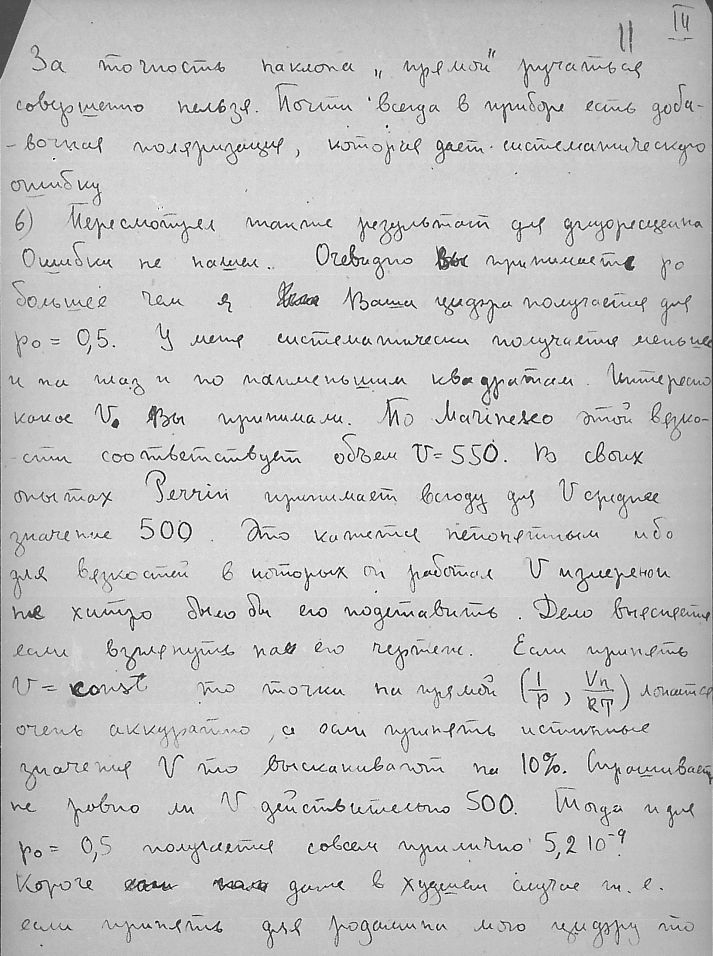 11 III
За точность наклона „прямой" ручаться
совершенно нельзя. Почти всегда в приборе есть доба-
-вочная поляризация, которая дает систематическую
ошибку
6) Пересмотрел также результат для флуоресцеина
Ошибки не нашел. Очевидно Вы принимаете p₀
большее чем я Ваша цифра получается для
p₀ = 0,5. У меня систематически получается меньшее
и на глаз и по наименьшим квадратам. Интересно
какое V. Вы принимали. По Marinesco этой вязко-
-сти соответствует объем V = 550. В своих
опытах Perrin принимает всюду для V среднее
значение 500. Это кажется непонятным ибо
для вязкостей в которых он работал V измерен и
не хитро было бы его подставить. Дело выясняется
если взглянуть на его чертеж. Если принять
V = const то точки на прямой (1/p, Vη/RT) ложатся
очень аккуратно, а если принять истинные
значения V то выскакивают на 10%. Спрашивается
не ровно ли V действительно 500. Тогда и для
p₀ = 0,5 получается совсем прилично 5,2 10⁻⁹.
Короче даже в худшем случае т. е.
если принять для родамина мою цифру то